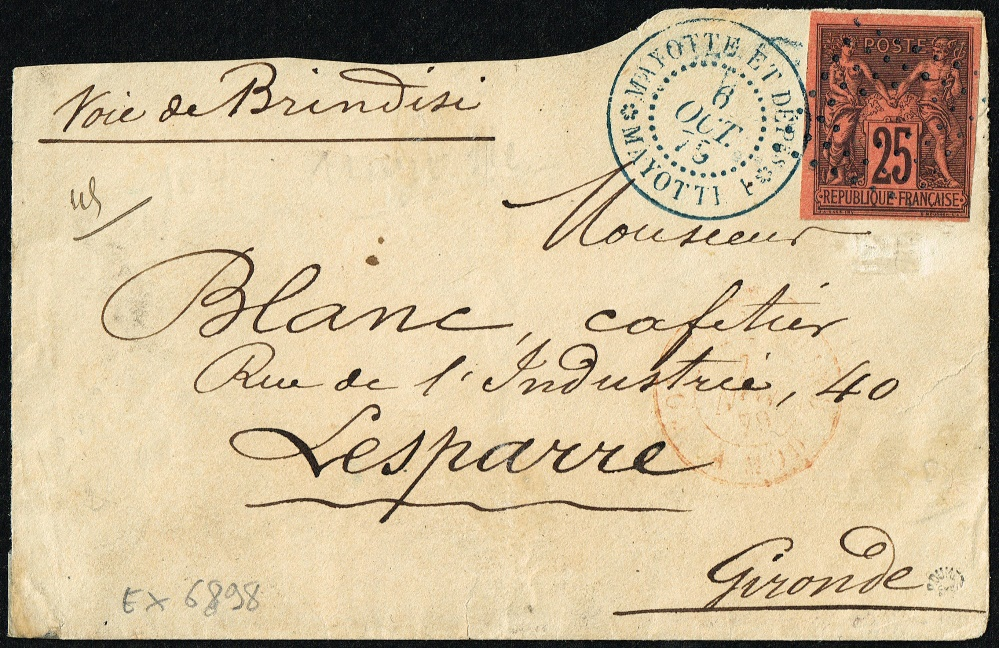 Voie de Brindisi
MAYOTTE ET DÉPES
6
OCT.
MAYOTTE
POSTE
25
RÉPUBLIQUE FRANÇAISE
Monsieur
Blanc, cafetier
Rue de l'Industrie, 40
Lesparre
Gironde
EX 6898